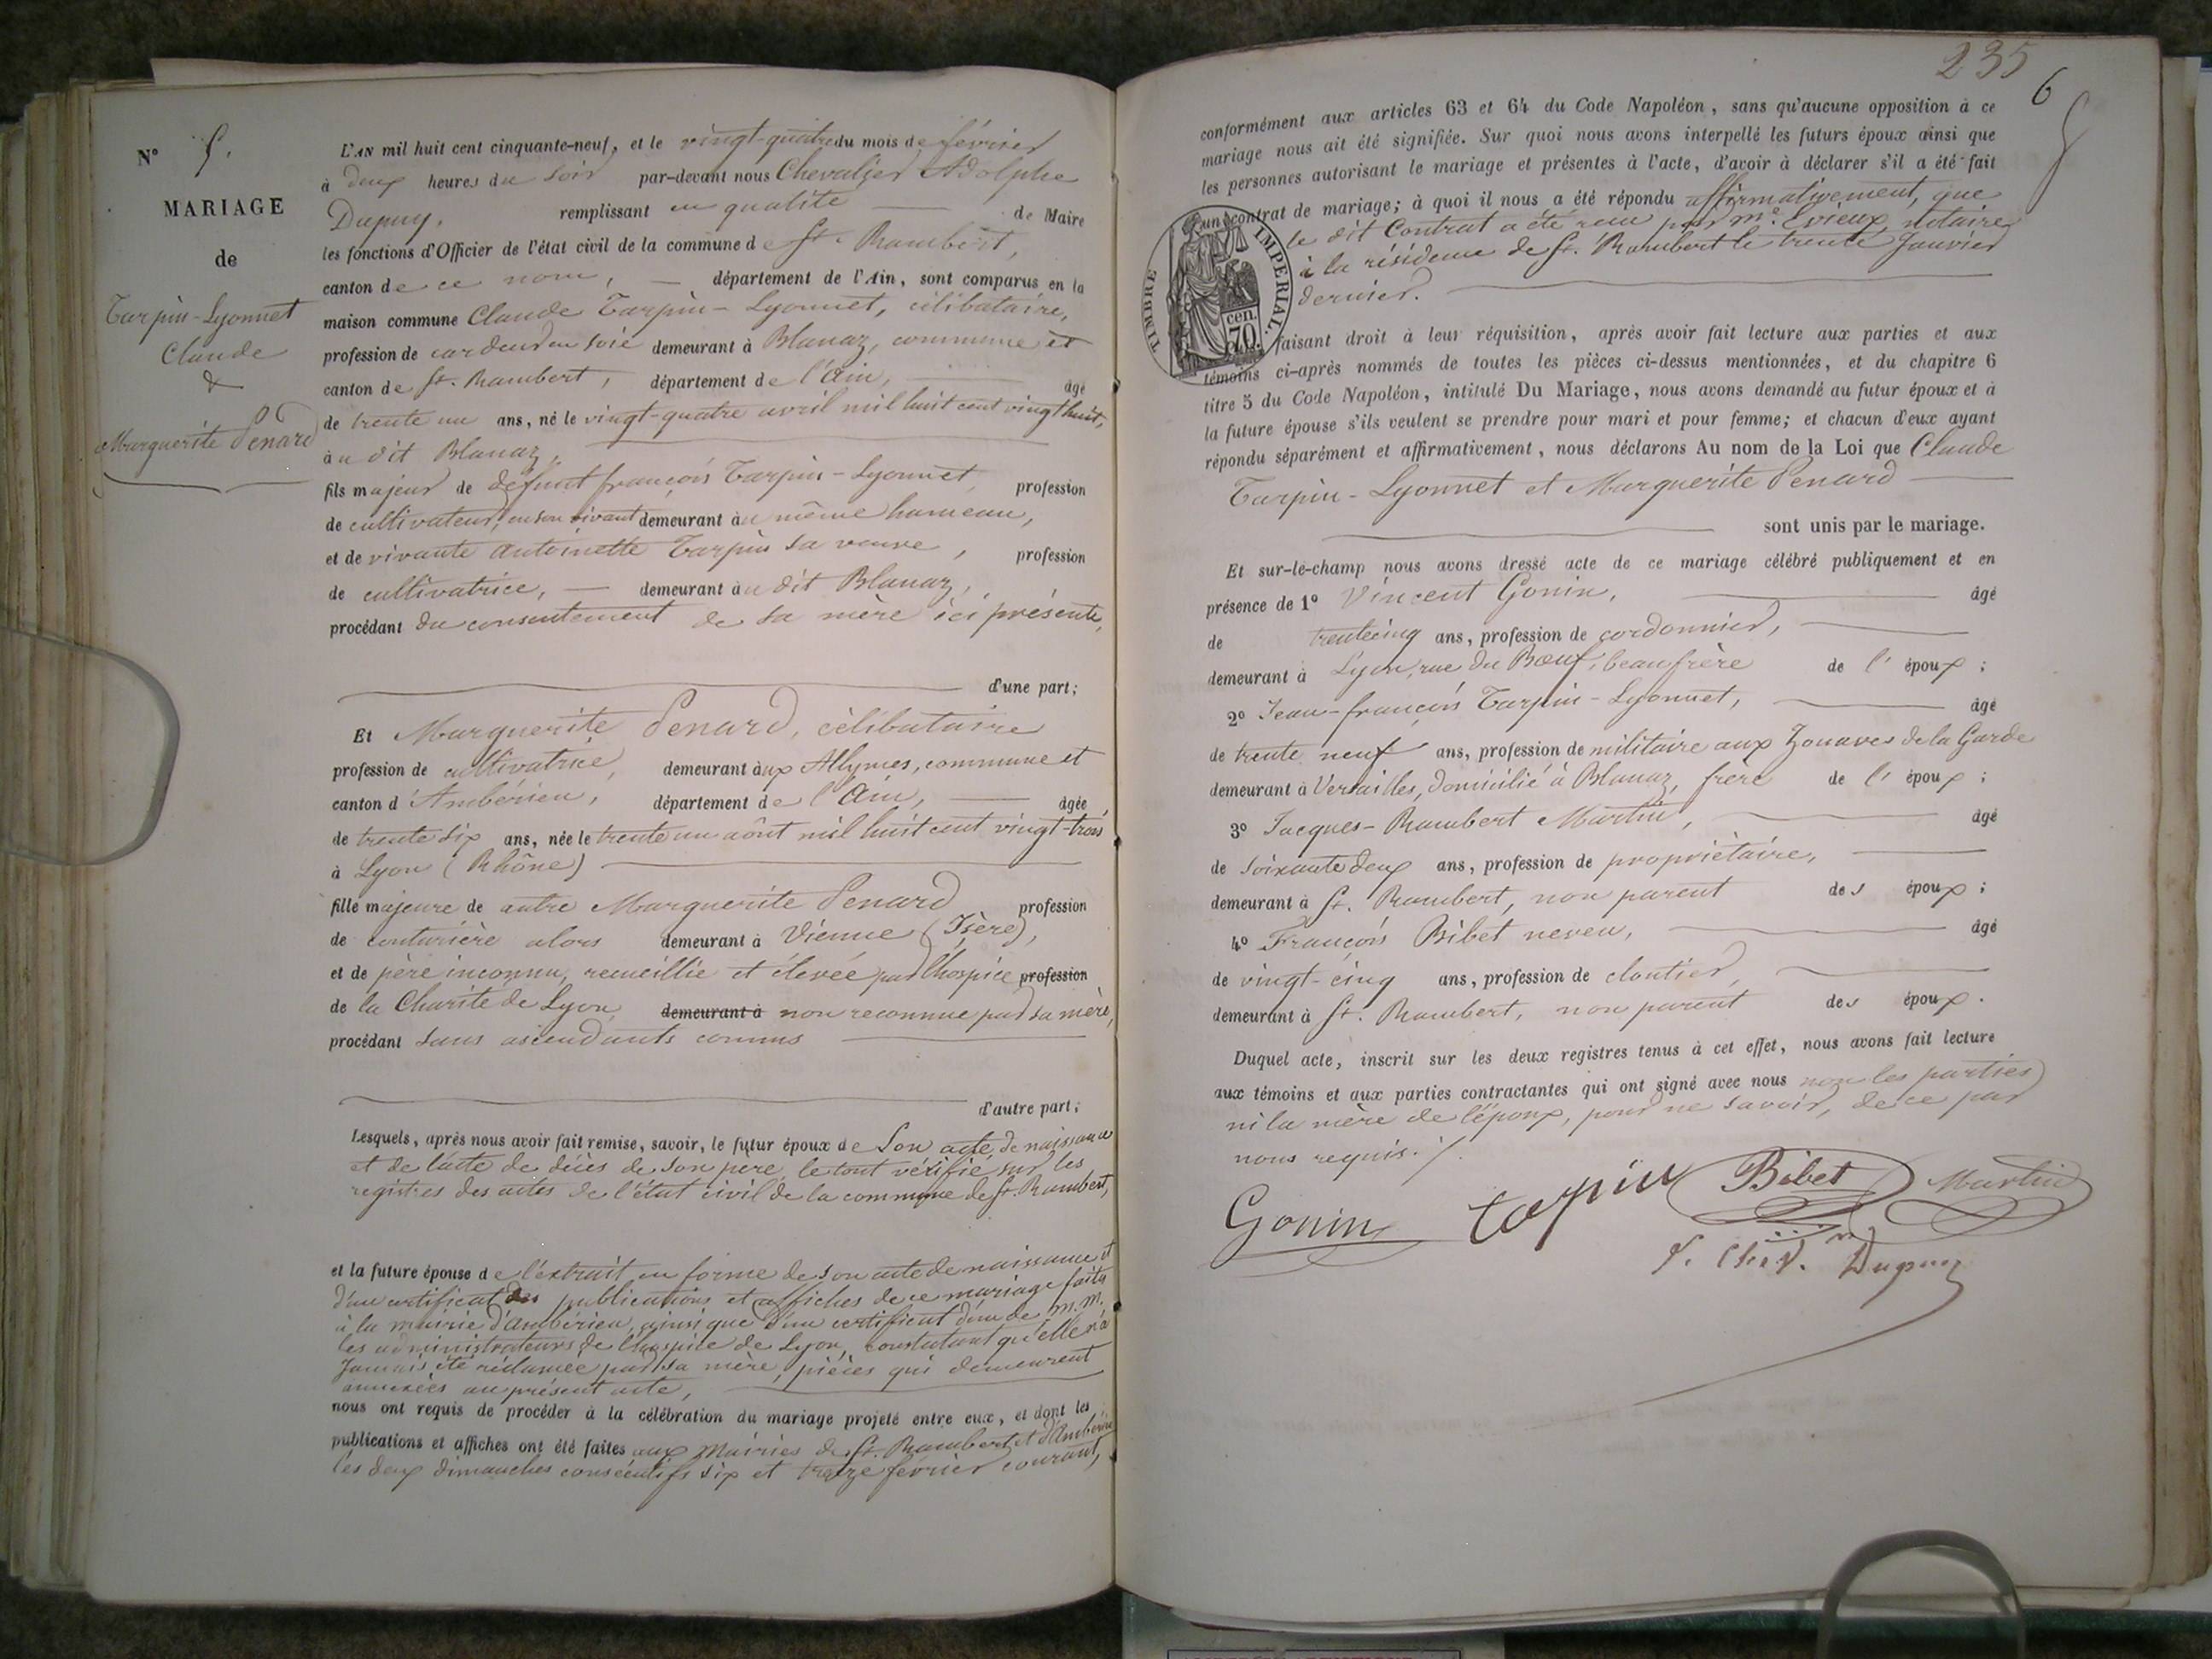 N° 5.
MARIAGE
de
Tarpin-Lyonnet
Claude
&
Marguerite Penard
L'AN mil huit cent cinquante-neuf, et le vingt-quatre du mois de février
à deux heures du soir par-devant nous Chevalier Adolphe
Dupuy, remplissant en qualité de Maire
les fonctions d'Officier de l'état civil de la commune de St. Rambert,
canton de ce nom, département de l'Ain, sont comparus en la
maison commune Claude Tarpin-Lyonnet, célibataire,
profession de cardeur en soie demeurant à Blanaz, commune et
canton de St. Rambert, département de l'Ain, âgé
de trente un ans, né le vingt-quatre avril mil huit cent vingt huit,
au dit Blanaz,
fils majeur de défunt françois Tarpin-Lyonnet, profession
de cultivateur, en son vivant demeurant au même hameau,
et de vivante antoinette Tarpin sa veuve, profession
de cultivatrice, demeurant au dit Blanaz,
procédant du consentement de sa mère ici présente,
d'une part;
Et Marguerite Penard, célibataire
profession de cultivatrice, demeurant aux Allymes, commune et
canton d'Ambérieu, département de l'Ain, âgée
de trente six ans, née le trente un août mil huit cent vingt-trois
à Lyon (Rhône)
fille majeure de autre Marguerite Penard profession
de couturière alors demeurant à Vienne (Isère),
et de père inconnu, recueillie et élevée par l'hospice profession
de la Charité de Lyon, demeurant à non reconnue par sa mère,
procédant sans ascendants connus
d'autre part;
Lesquels, après nous avoir fait remise, savoir, le futur époux de Son acte de naissance
et de l'acte de décès de son père, le tout vérifié sur les
registres des actes de l'état civil de la commune de St. Rambert,
et la future épouse de l'extrait en forme de son acte de naissance et
d'un certificat des publications et affiches de ce mariage faites
à la mairie d'Ambérieu, ainsi que d'un certificat d'un de M.M.
les administrateurs de l'hospice de Lyon, constatant qu'elle n'a
Jamais été réclamée par sa mère, pièces qui demeurent
annexées au présent acte,
nous ont requis de procéder à la célébration du mariage projeté entre eux, et dont les
publications et affiches ont été faites aux Mairies de St. Rambert et d'Ambérieu
les deux dimanches consécutifs six et treize février courant,
235
6
conformément aux articles 63 et 64 du Code Napoléon, sans qu'aucune opposition à ce
mariage nous ait été signifiée. Sur quoi nous avons interpellé les futurs époux ainsi que
les personnes autorisant le mariage et présentes à l'acte, d'avoir à déclarer s'il a été fait
un contrat de mariage; à quoi il nous a été répondu affirmativement, que
le dit Contrat a été reçu par Me. Evieux, notaire
à la résidence de St. Rambert le trente Janvier
dernier.
TIMBRE IMPERIAL
70 cen.
faisant droit à leur réquisition, après avoir fait lecture aux parties et aux
témoins ci-après nommés de toutes les pièces ci-dessus mentionnées, et du chapitre 6
titre 5 du Code Napoléon, intitulé Du Mariage, nous avons demandé au futur époux et à
la future épouse s'ils veulent se prendre pour mari et pour femme; et chacun d'eux ayant
répondu séparément et affirmativement, nous déclarons Au nom de la Loi que Claude
Tarpin-Lyonnet et Marguerite Penard
sont unis par le mariage.
Et sur-le-champ nous avons dressé acte de ce mariage célébré publiquement et en
présence de 1° Vincent Gonin, âgé
de trente cinq ans, profession de cordonnier,
demeurant à Lyon, rue du Bœuf, beau frère de l'époux;
2° Jean-françois Tarpin-Lyonnet, âgé
de trente neuf ans, profession de militaire aux Zouaves de la Garde
demeurant à Versailles, domicilié à Blanaz, frère de l'époux;
3° Jacques-Rambert Martin, âgé
de soixante deux ans, profession de propriétaire,
demeurant à St. Rambert, non parent des époux;
4° François Bibet neveu, âgé
de vingt-cinq ans, profession de cloutier,
demeurant à St. Rambert, non parent des époux.
Duquel acte, inscrit sur les deux registres tenus à cet effet, nous avons fait lecture
aux témoins et aux parties contractantes qui ont signé avec nous non les parties
ni la mère de l'époux, pour ne savoir, de ce par
nous requis.
Gonin tarpin Bibet Martin
Dupuy